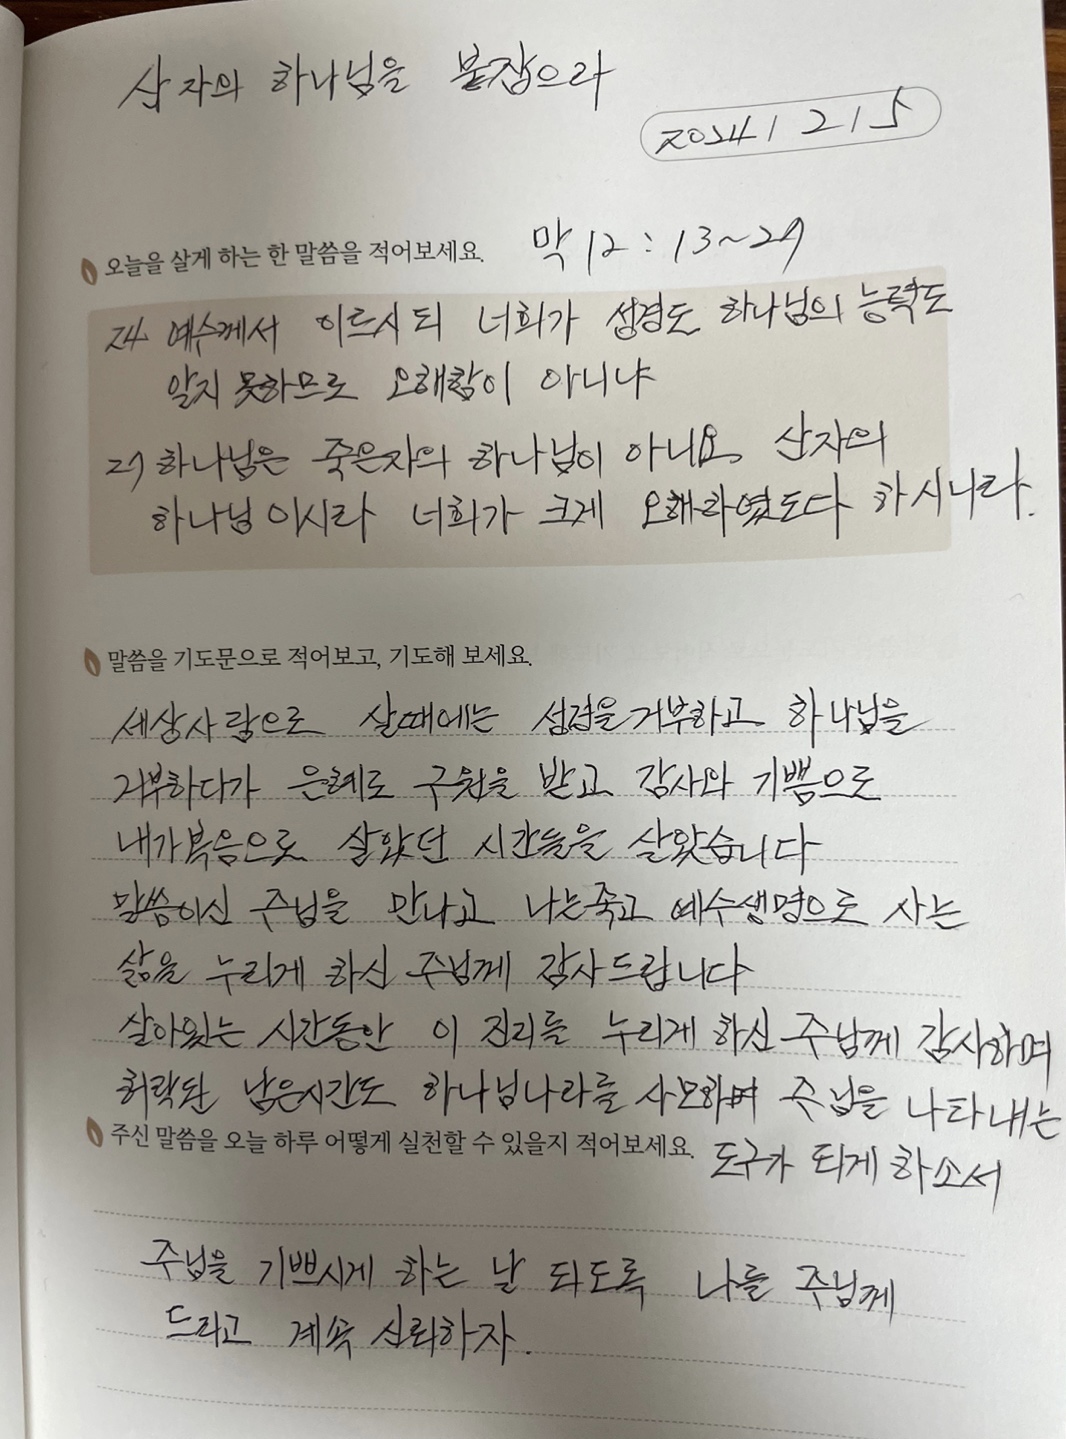 산 자의 하나님을 붙잡으라
2024 / 2 / 5
오늘을 살게 하는 한 말씀을 적어보세요. 막 12 : 13~27
24 예수께서 이르시되 너희가 성경도 하나님의 능력도
알지 못하므로 오해함이 아니냐
27 하나님은 죽은자의 하나님이 아니요 산자의
하나님이시라 너희가 크게 오해하였도다 하시니라.
말씀을 기도문으로 적어보고, 기도해 보세요.
세상사람으로 살때에는 성경을 거부하고 하나님을
거부하다가 은혜로 구원을 받고 감사와 기쁨으로
내가복음으로 살았던 시간들을 살았습니다
말씀이신 주님을 만나고 나는죽고 예수생명으로 사는
삶을 누리게 하신 주님께 감사드립니다
살아있는 시간동안 이 진리를 누리게 하신 주님께 감사하며
허락된 남은시간도 하나님나라를 사모하며 주님을 나타내는
도구가 되게 하소서
주신 말씀을 오늘 하루 어떻게 실천할 수 있을지 적어보세요.
주님을 기쁘시게 하는 날 되도록 나를 주님께
드리고 계속 신뢰하자.